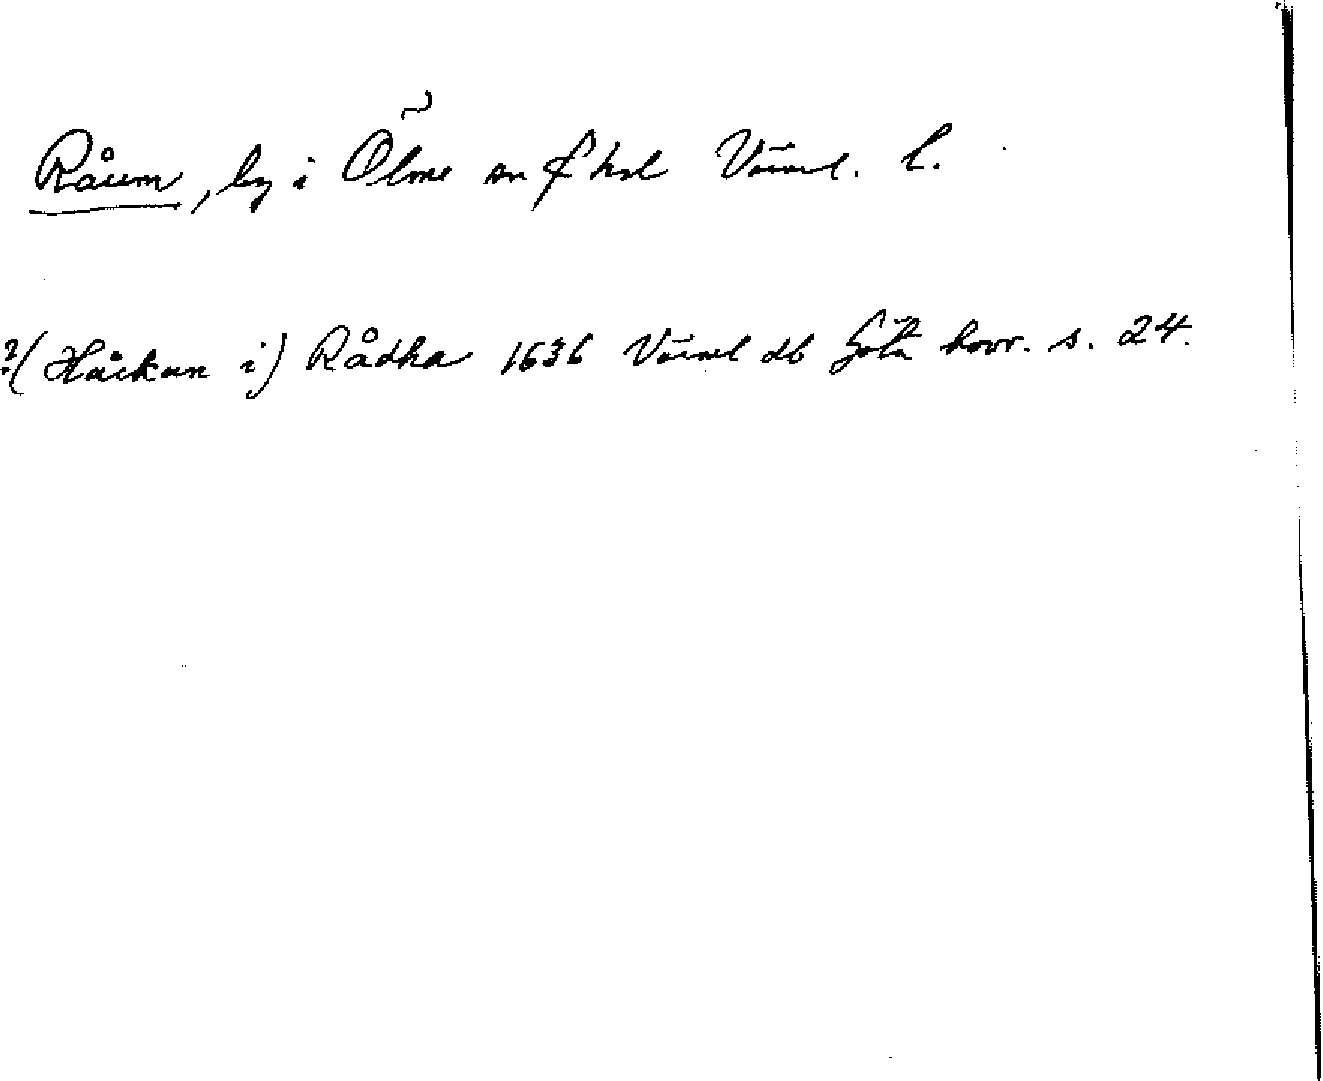 Råum, by i Ölme sn o hd Värml. l.
?(Håckan i) Rådha 1636 Värml db Göta hovr. s. 24.